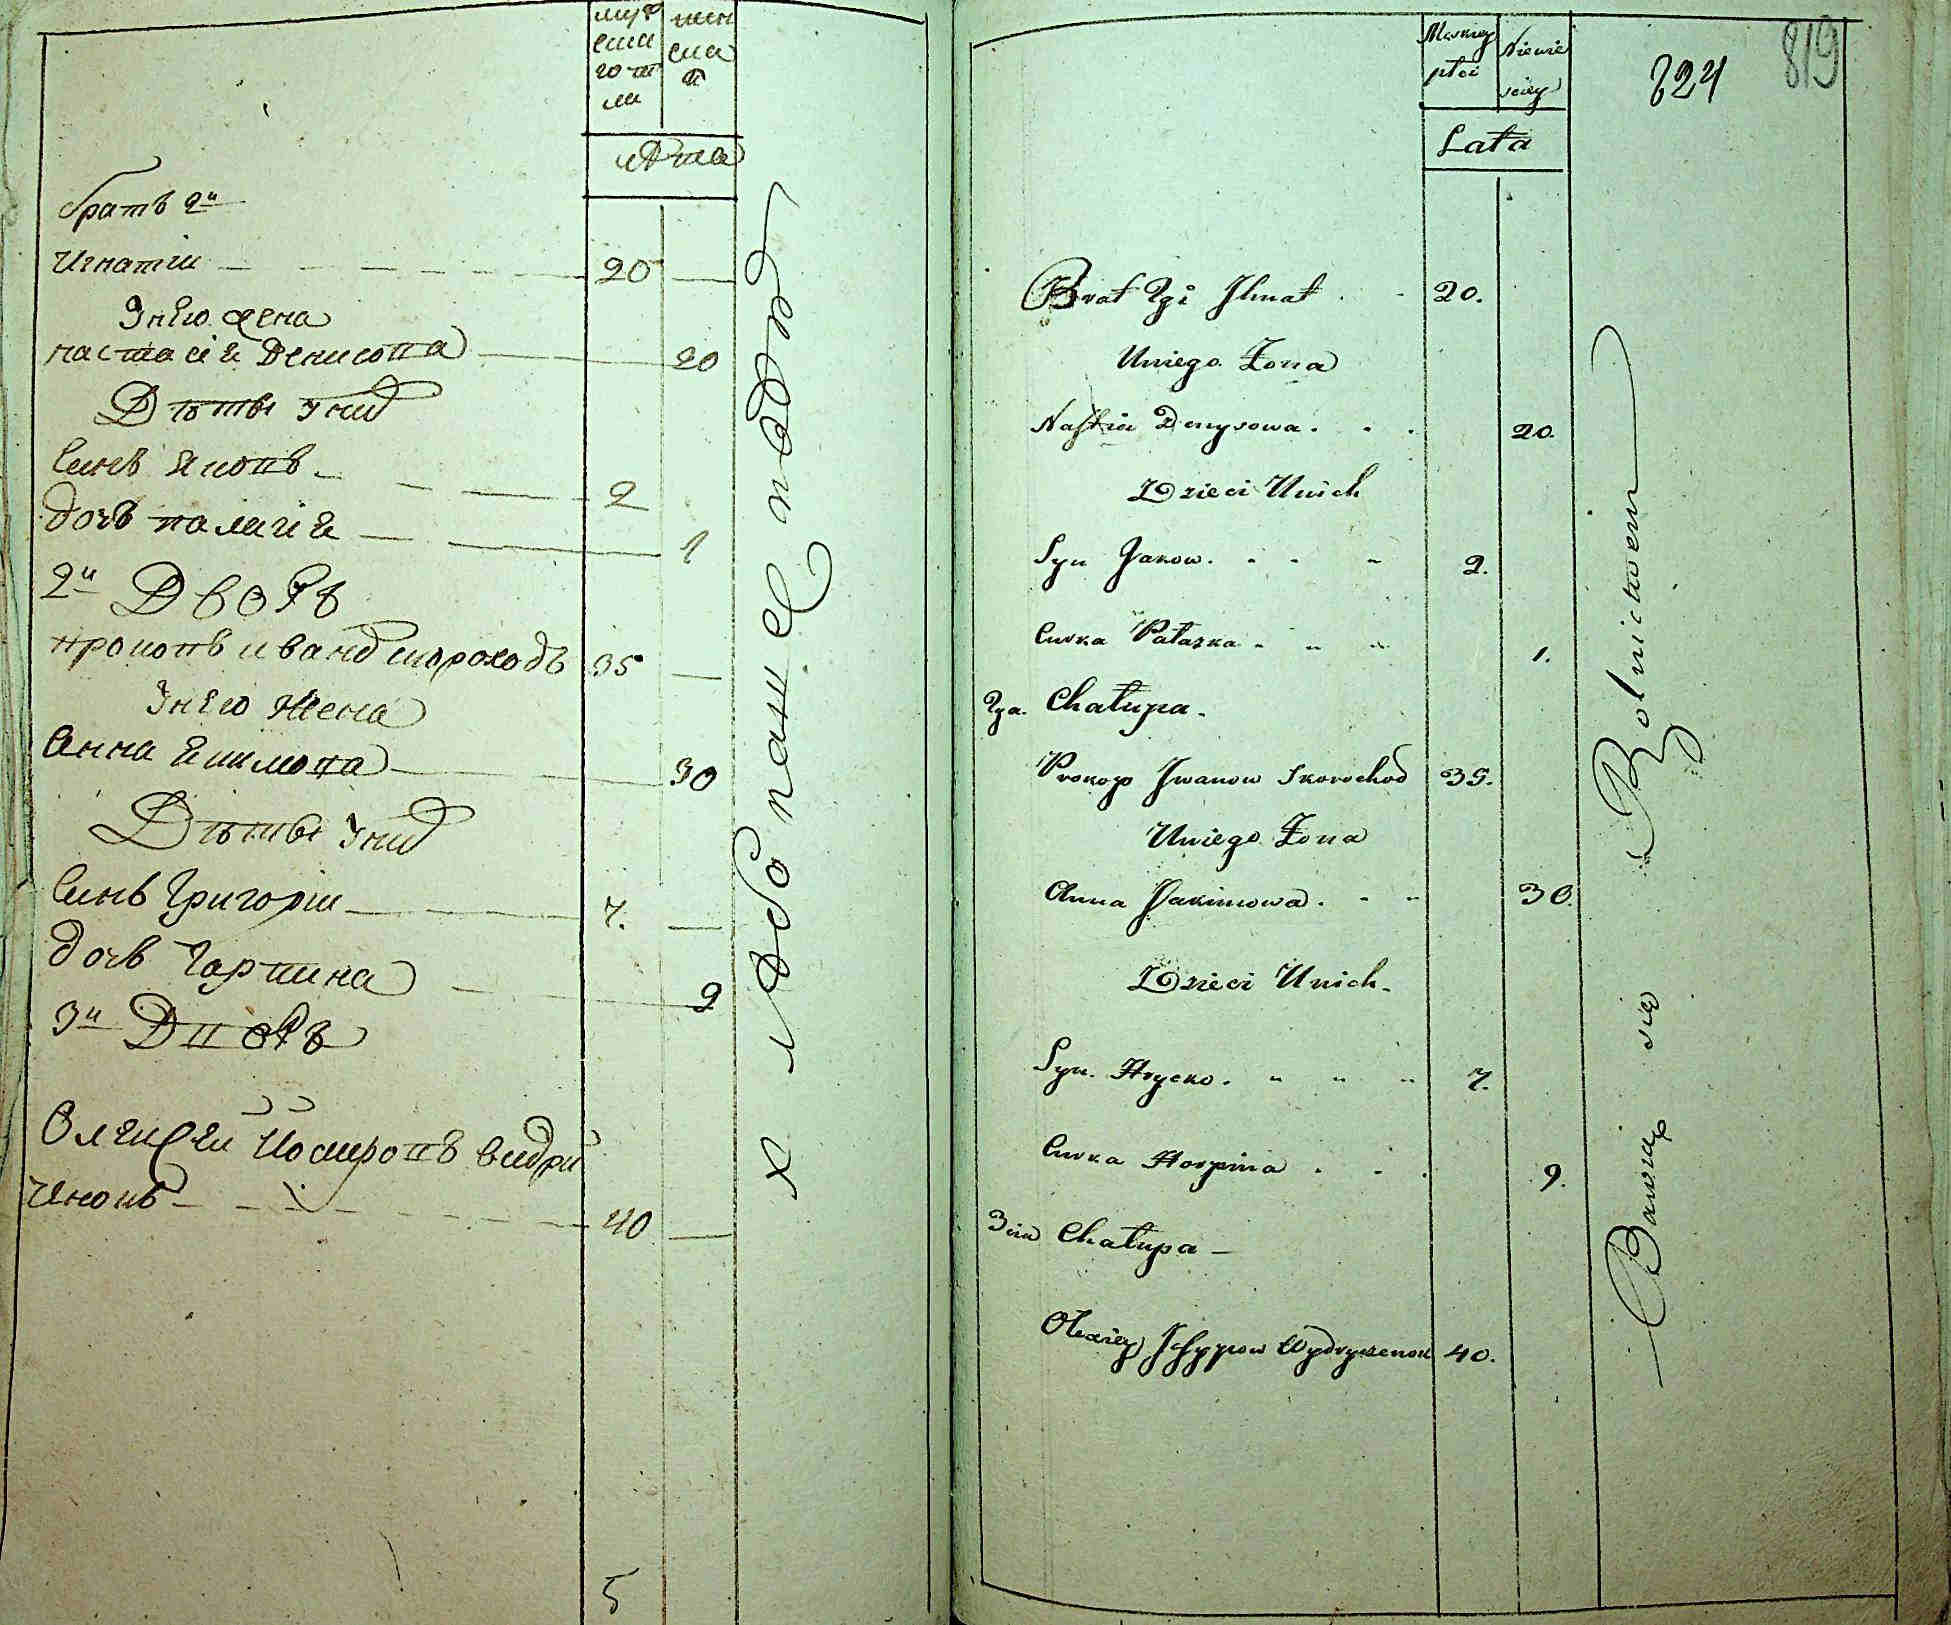 мужеска го пола
женска
Лѣта
братъ 2й
Игнатій 20
Унего жена
настасія Денисова 20
Дѣти Уних
Синъ Яковъ 2
дочъ палагія 1
2й Дворъ
прокопъ иванов скороход 35
Унего жена
Анна Якимова 30
Дѣти Уних
Синъ Григорій 7.
дочъ Гарпина 9
3й Дворъ
Олексей Иосиповъ видри
ченокъ 40
5
хлебопашец
Męskiey płci
Niewieściey
Lata
824
819
Brat 2gi Ihnat 20.
Uniego Żona
Nastia Denysowa 20.
Dzieci Unich
Syn Jakow 2.
Curka Pałaszka 1.
2ga Chałupa
Prokop Jwanow Skorochod 35.
Uniego Żona
Anna Jakimowa 30.
Dzieci Unich
Syn Hryćko 7.
Curka Horpina 9.
3cia Chałupa
Ołexiey Jossypow Wydryczenok 40.
Bawią się Rolnictwem